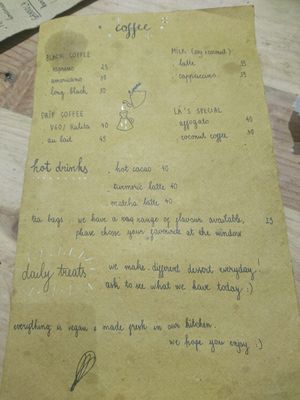 coffee
BLACK COFFEE
espresso 25
americano 30
long black 30
Milk (soy/coconut)
latte 35
cappuccino 35
DRIP COFFEE
V60 / Kalita 40
au lait 45
LÁ'S SPECIAL
affogato 50
coconut coffee 50
hot drinks
hot cacao 40
turmeric latte 40
matcha latte 40
tea bags - we have a vag range of flavour available, 25
please chose your favourite at the window
daily treats
we make different dessert everyday!
ask to see what we have today :)
everything is vegan & made fresh in our kitchen.
we hope you enjoy :)